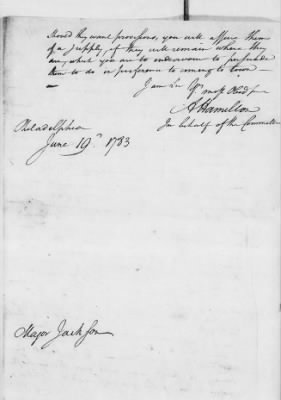 Should they want provisions, you will assure them
of a supply, if they will remain where they
are, which you are to endeavour to persuade
them to do in preference to coming to town —
I am Sir Yr. most Obed
A Hamilton
In behalf of the Committee
Philadelphia
June 19th. 1783
Major Jackson